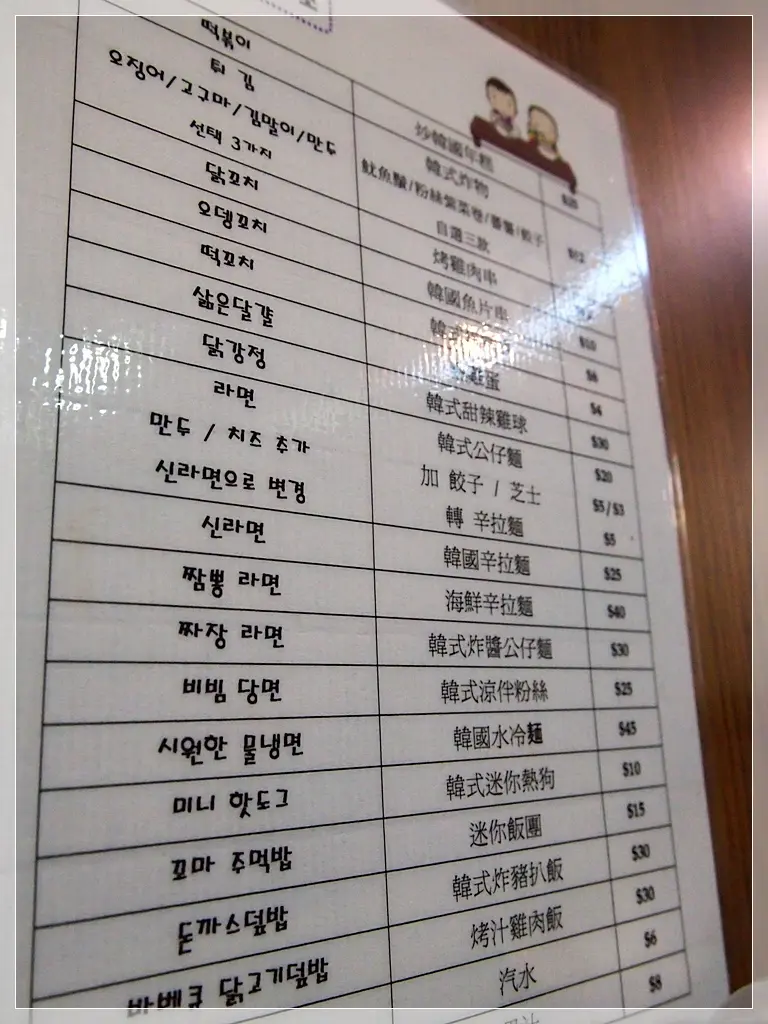 떡볶이 炒韓國年糕
튀김 韓式炸物
오징어/고구마/김말이/만두 魷魚鬚/粉絲紫菜卷/番薯/餃子
선택 3가지 自選三款
닭꼬치 烤雞肉串
오뎅꼬치 韓國魚片串 $10
떡꼬치 韓式 $6
삶은달걀 雞蛋 $4
닭강정 韓式甜辣雞球 $30
라면 韓式公仔麵 $20
만두 / 치즈 추가 加 餃子 / 芝士 $5/$3
신라면으로 변경 轉 辛拉麵 $5
신라면 韓國辛拉麵 $25
짬뽕 라면 海鮮辛拉麵 $40
짜장 라면 韓式炸醬公仔麵 $30
비빔 당면 韓式涼伴粉絲 $25
시원한 물냉면 韓國水冷麵 $45
미니 핫도그 韓式迷你熱狗 $10
꼬마 주먹밥 迷你飯團 $15
돈까스덮밥 韓式炸豬扒飯 $30
바베큐 닭고기덮밥 烤汁雞肉飯 $30
汽水 $6
$8